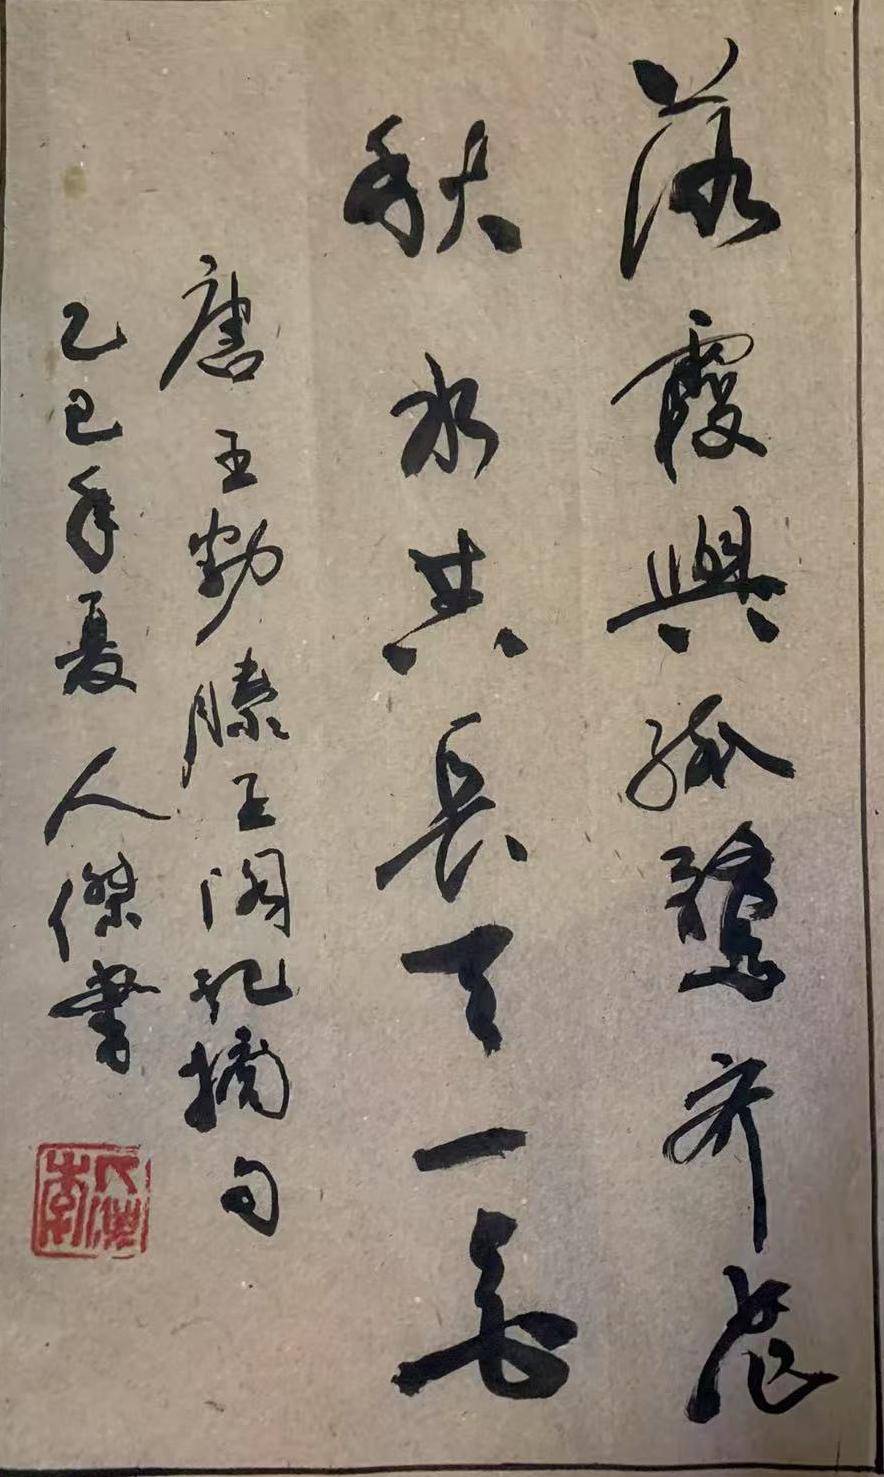 落霞與孤鶩齐飛
秋水共長天一色
唐王勃滕王阁記摘句
乙巳年夏人傑書